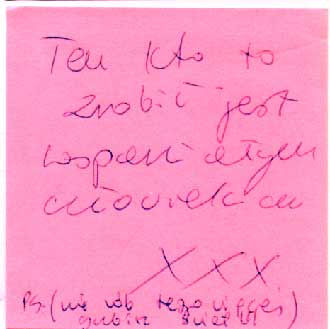 Ten kto to
zrobił jest
wspaniałym
człowiekiem
XXX
PS. (nie rób tego więcej)